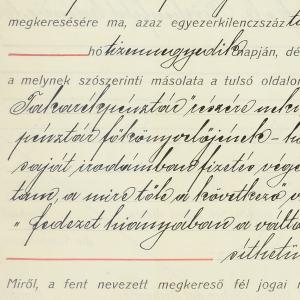 megkeresésére ma, azaz egyezerkilencszáz
hó tizennegyedik napján, dé
a melynek szószerinti másolata a tulsó oldalon
Takarékpénztár" részére nek
pénztár főkönyvelőjének -
saját irodámban fizetés vége
tam, a mire tőle a következő v
" fedezet hiányában a válto
sithetü
Miről, a fent nevezett megkereső fél jogai